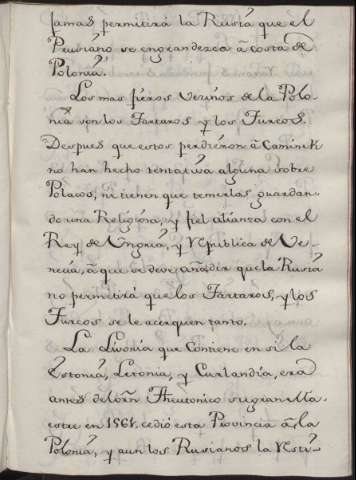 jamas permitirá la Rusia que el
Prusiano se engrandezca â costa de
Polonia.
Los mas fieros vecinos de la Polo-
nia son los Tartaros y los Turcos.
Despues que estos perdieron â Caminik
no han hecho tentativa alguna sobre
Polacos, ni tienen que temerlas guardan-
do una Religiosa, y fiel alianza con el
Rey de Ungria, y Republica de Ve-
necia, â que se deve añadir que la Rusia
no permitirá que los Tartaros, y los
Turcos se le acerquen tanto.
La Livonia que contiene en si la
Estonia, Letonia, y Curlandia, era
antes del orñ Theutonico su gran Ma-
estre en 1561. cedió esta Provincia â la
Polonia, y aun los Rusianos la